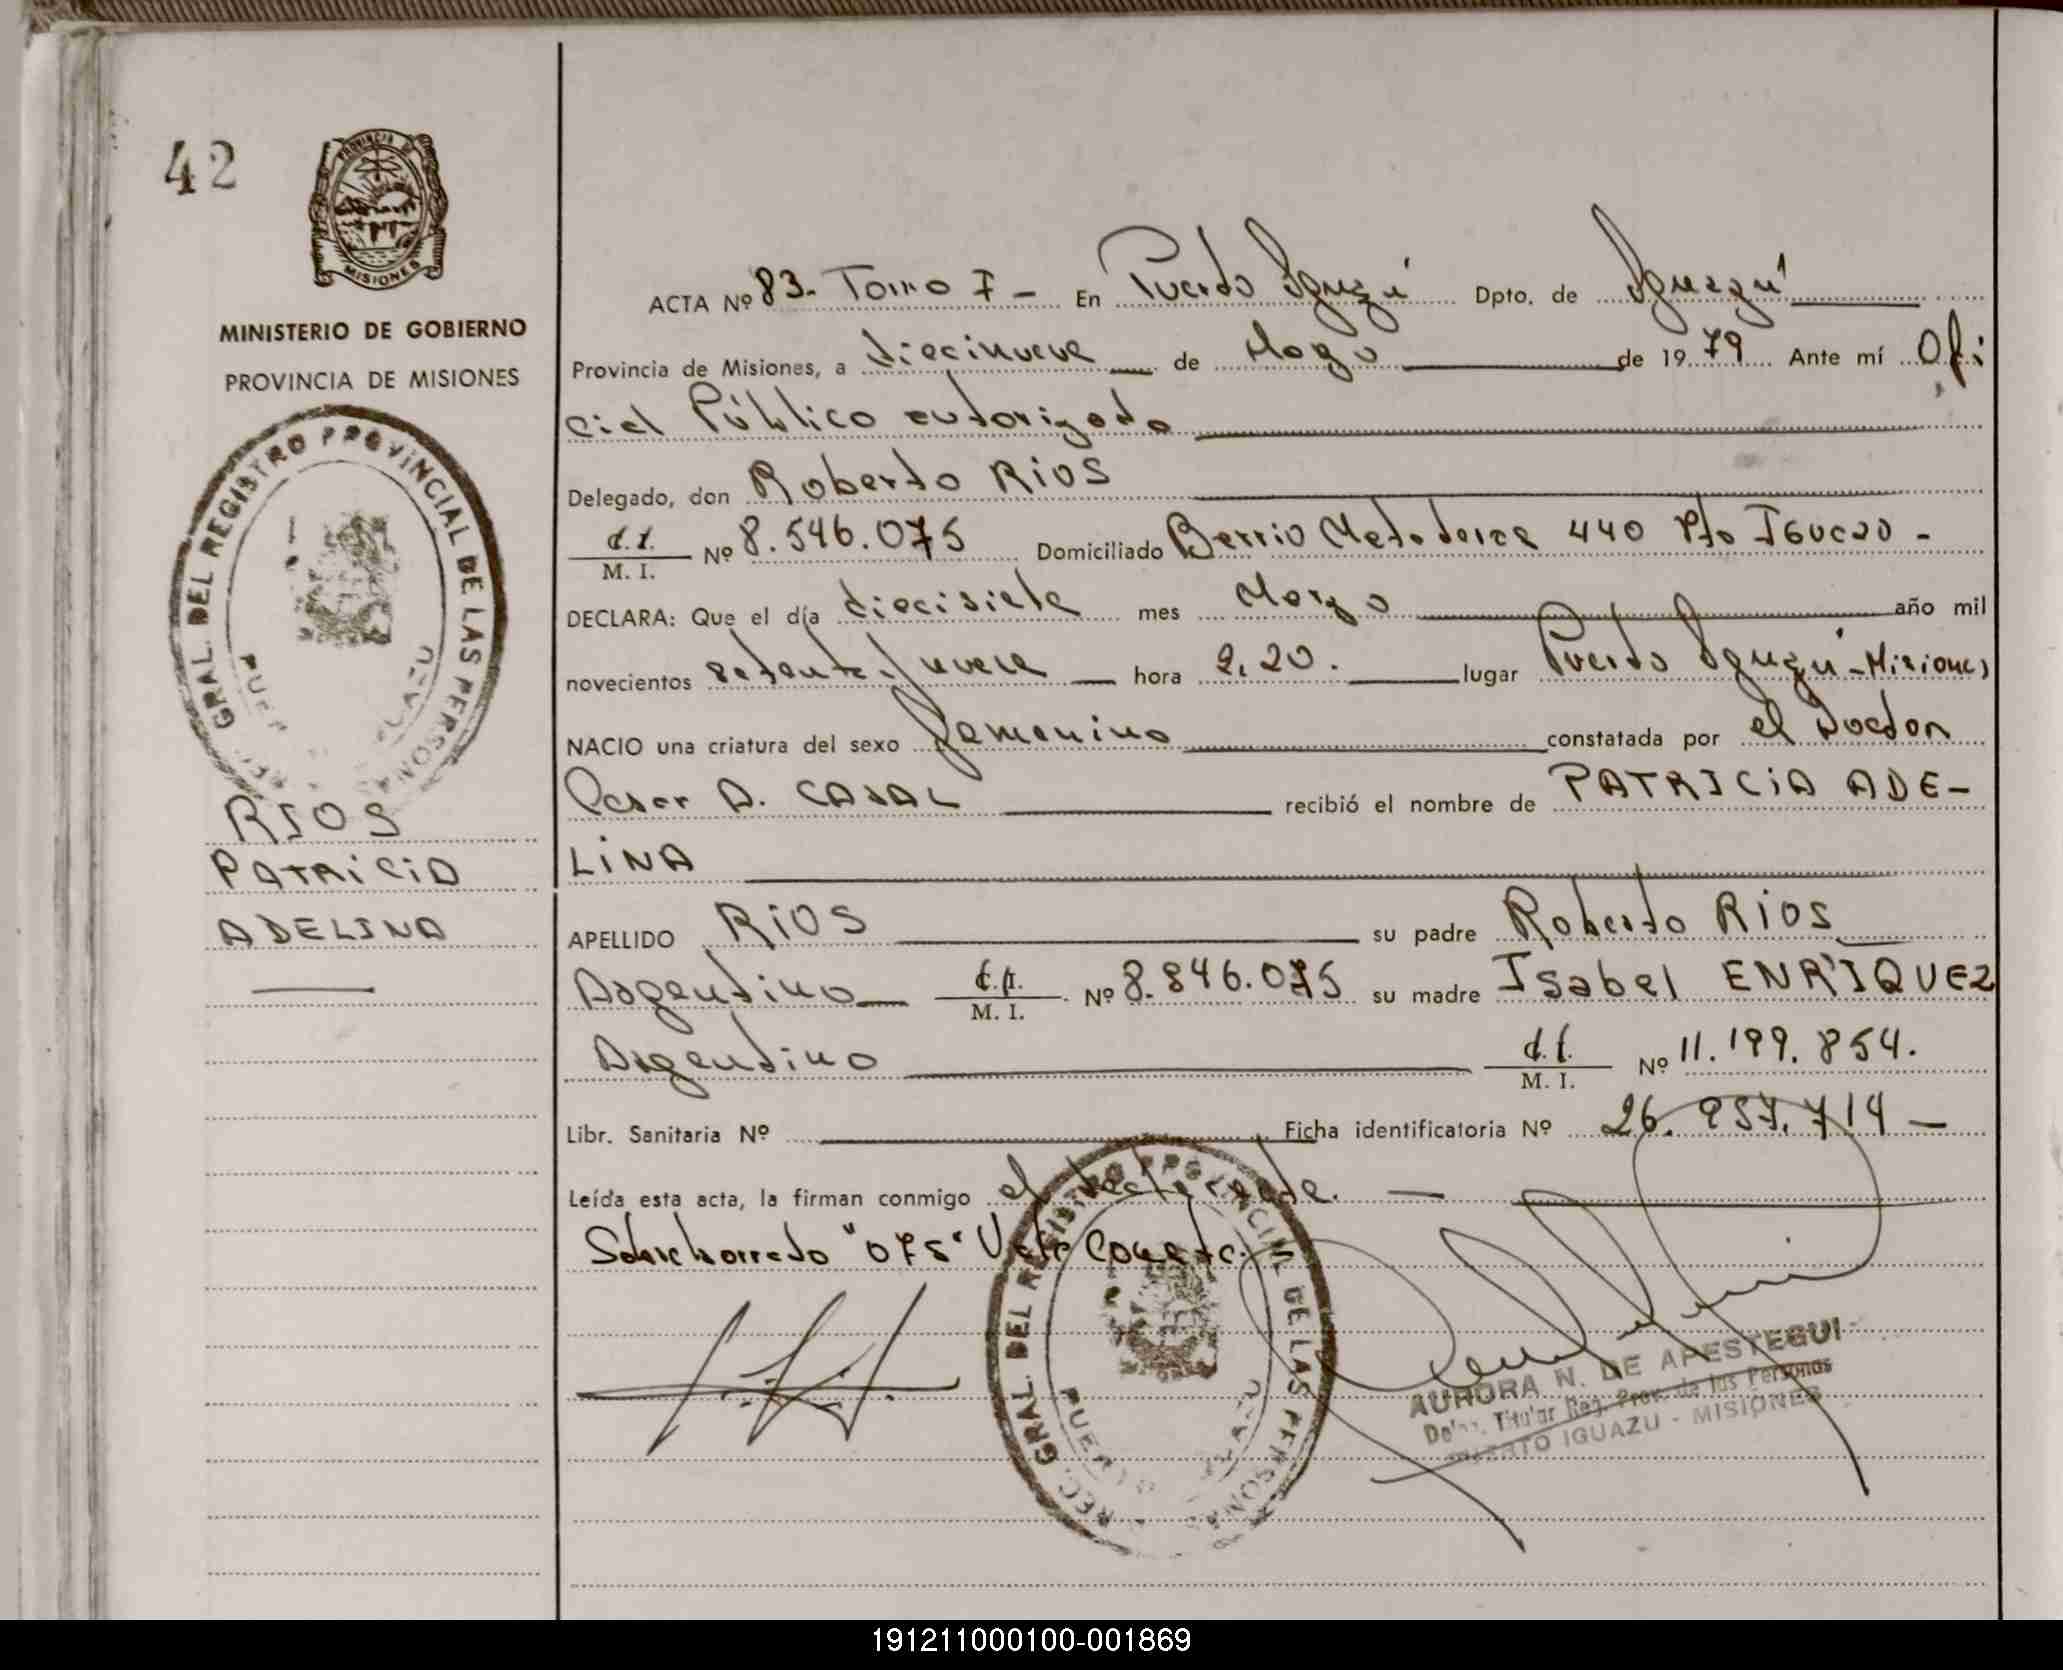 42
PROVINCIA DE
MISIONES
MINISTERIO DE GOBIERNO
PROVINCIA DE MISIONES
REC. GRAL. DEL REGISTRO PROVINCIAL DE LAS PERSONAS
PUERTO IGUAZU
RIOS
PATRICIA
ADELINA
ACTA Nº 83- Tomo I - En Puerto Iguazú Dpto. de Iguazú
Provincia de Misiones, a diecinueve de Marzo de 1979 Ante mí Ofi
cial Público autorizado
Delegado, don Roberto RIOS
d.i.
M. I. Nº 8.546.075 Domiciliado Barrio Matadero 440 Pto IGUAZU -
DECLARA: Que el día diecisiete mes Marzo año mil
novecientos setenta y nueve hora 2,20. lugar Puerto Iguazú - Misiones
NACIO una criatura del sexo femenino constatada por el Doctor
Cesar A. CASAL recibió el nombre de PATRICIA ADE-
LINA
APELLIDO RIOS su padre Roberto RIOS
Argentino M. I. Nº 8.546.075 su madre Isabel ENRIQUEZ
Argentino
M. I. Nº 11.199.854.
Libr. Sanitaria Nº Ficha identificatoria Nº 26.957.714 -
Leída esta acta, la firman conmigo el declarante. -
Sobreborrado "075" Vale Conste.
REC. GRAL. DEL REGISTRO PROVINCIAL DE LAS PERSONAS
PUERTO IGUAZU
AURORA N. DE APESTEGUI
Deleg. Titular Reg. Prov. de las Personas
PUERTO IGUAZU - MISIONES
191211000100-001869